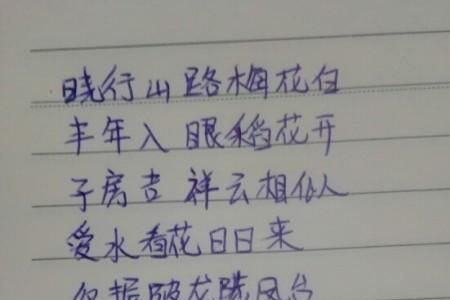 晓行山路梅花白
丰年入眼稻花开
子房吉祥云相似人
爱水看花日日来